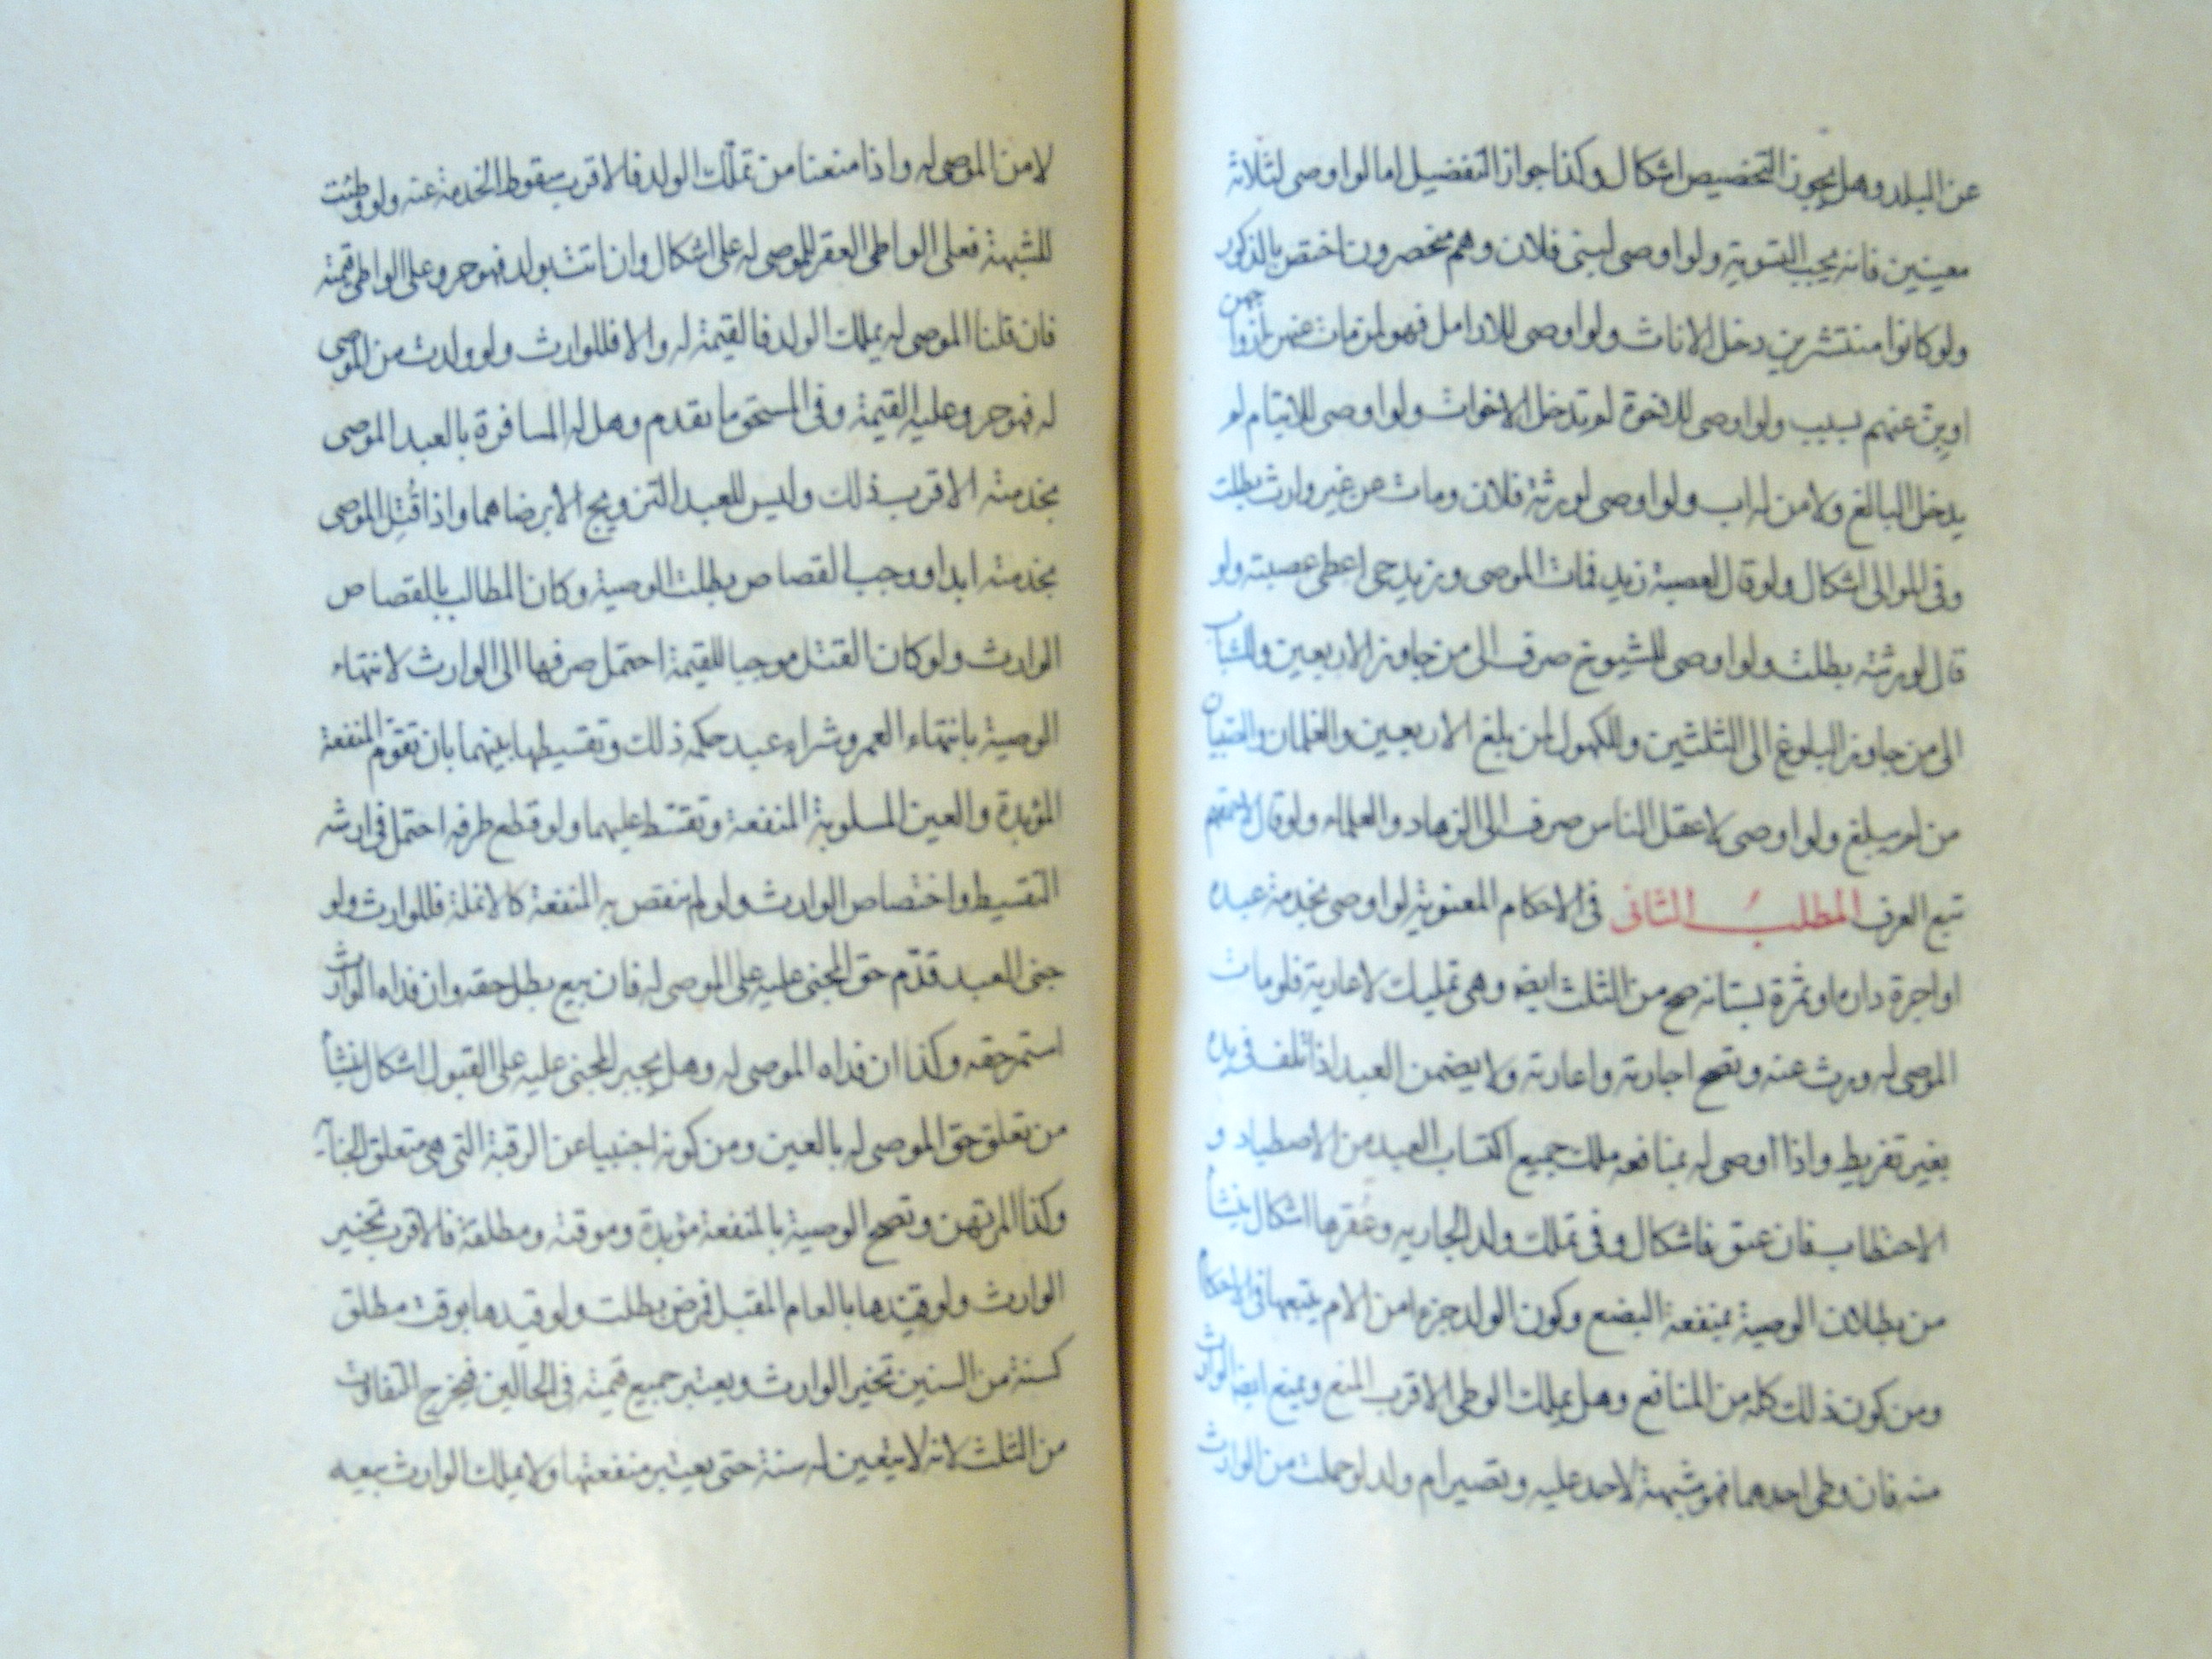 عن البلد وهل يجوز التخصيص اشكال وكذا جواز التفضيل اما لو اوصى لثلاثة
معينين فانه يجب التسوية ولو اوصى لبنى فلان وهم منحصرون اختص بالذكور
ولو كانوا منتشرين دخل الاناث ولو اوصى للارامل فهو لمن مات عنهن ازواجهن
او بن عنهم بسبب ولو اوصى للاخوة لم تدخل الاخوات ولو اوصى للايتام لم
يدخل البالغ ولا من له اب ولو اوصى لورثة فلان ومات عن غير وارث بطلت
وفى الموالى اشكال ولو قال لعصبة زيد فمات الموصى وزيد حى اعطى عصبته ولو
قال لورثته بطلت ولو اوصى للشيوخ صرف الى من جاوز الاربعين وللشباب
الى من جاوز البلوغ الى الثلثين وللكهول لمن بلغ الاربعين والغلمان والصبيان
من لم يبلغ ولو اوصى لاعقل الناس صرف الى الزهاد والعلماء ولو قال لاحمقهم
تبع العرف المطلب الثانى فى الاحكام المعنوية لو اوصى بخدمة عبده
او اجرة داره او ثمرة بستانه صح من الثلث ايضا وهى تمليك لا عارية فلو مات
الموصى له ورث عنه وتصح اجارته واعارته ولا يضمن العبد اذا تلف فى يده
بغير تفريط واذا اوصى له بمنافعه ملك جميع اكتساب العبد من الاصطياد و
الاحتطاب فان عتق فاشكال وفى تملك ولد الجاريه وعُقرها اشكال ينشأ
من بطلان الوصية بمنفعة البضع وكون الولد جزءا من الام يتبعها فى الاحكام
ومن كون ذلك كله من المنافع وهل يملك الوطى الاقرب المنع ويمنع ايضا الوارث
منه فان وطى احدهما فهو شبهة لا حد عليه وتصير ام ولد لو حملت من الوارث
لا من الموصى له واذا منعنا من تملّك الولد فالاقرب سقوط الخدمة عنه ولو وطئت
للشبهة فعلى الواطى العقر للموصى له على اشكال وان اتت بولد فهو حر وعلى الواطى قيمته
فان قلنا الموصى له يملك الولد فالقيمة له والا فللوارث ولو ولدت من الموصى
له فهو حر وعليه القيمة وفى المستحق ما تقدم وهل له المسافرة بالعبد الموصى
بخدمته الاقرب ذلك وليس للعبد التزويج الا برضاهما واذا قُتِل الموصى
بخدمته ابدا ووجب القصاص بطلت الوصية وكان المطالب بالقصاص
الوارث ولو كان القتل موجبا للقيمة احتمل صرفها الى الوارث لانتهاء
الوصية بانتهاء العمر وشراء عبد حكمه ذلك وتقسيطها بينهما بان تقوّم المنفعة
المؤبدة والعين المسلوبة المنفعة وتقسّط عليهما ولو قطع طرفه احتمل فى ارشه
التقسيط واختصاص الوارث ولو لم ينقص به المنفعة كالانملة فللوارث ولو
جنى العبد قدّم حق المجنى عليه على الموصى له فان بيع بطل حقه وان فداه الوارث
استمر حقه وكذا ان فداه الموصى له وهل يجبر المجنى عليه على القبول اشكال ينشأ
من تعلق حق الموصى له بالعين ومن كونه اجنبيا عن الرقبة التى هى متعلق الجناية
وكذا المرتهن وتصح الوصية بالمنفعة مؤبدة وموقتة ومطلقة فالاقرب تخيير
الوارث ولو قيّدها بالعام المقبل فمرض بطلت ولو قيدها بوقت مطلق
كسنة من السنين تخير الوارث ويعتبر جميع قيمته فى الحالين فيخرج التفاوت
من الثلث لانه لا يتعين له سنة حتى يعتبر منفعتها ولا يملك الوارث بيعه